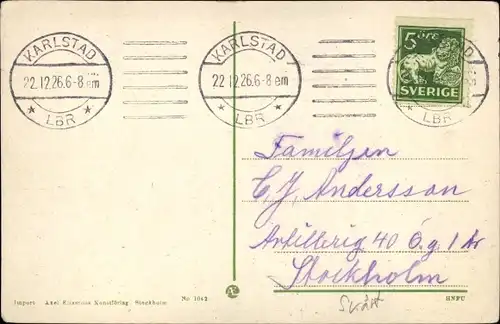 KARLSTAD
22.12.26.6-8 em
LBR
KARLSTAD
22.12.26.6-8 em
LBR
5 öre
SVERIGE
LBR
Familjen
C J Andersson
Artillerig 40 Ö.g. 1 tr
Stockholm
Import Axel Eliassons Konstförlag, Stockholm
No 1642
HNFU